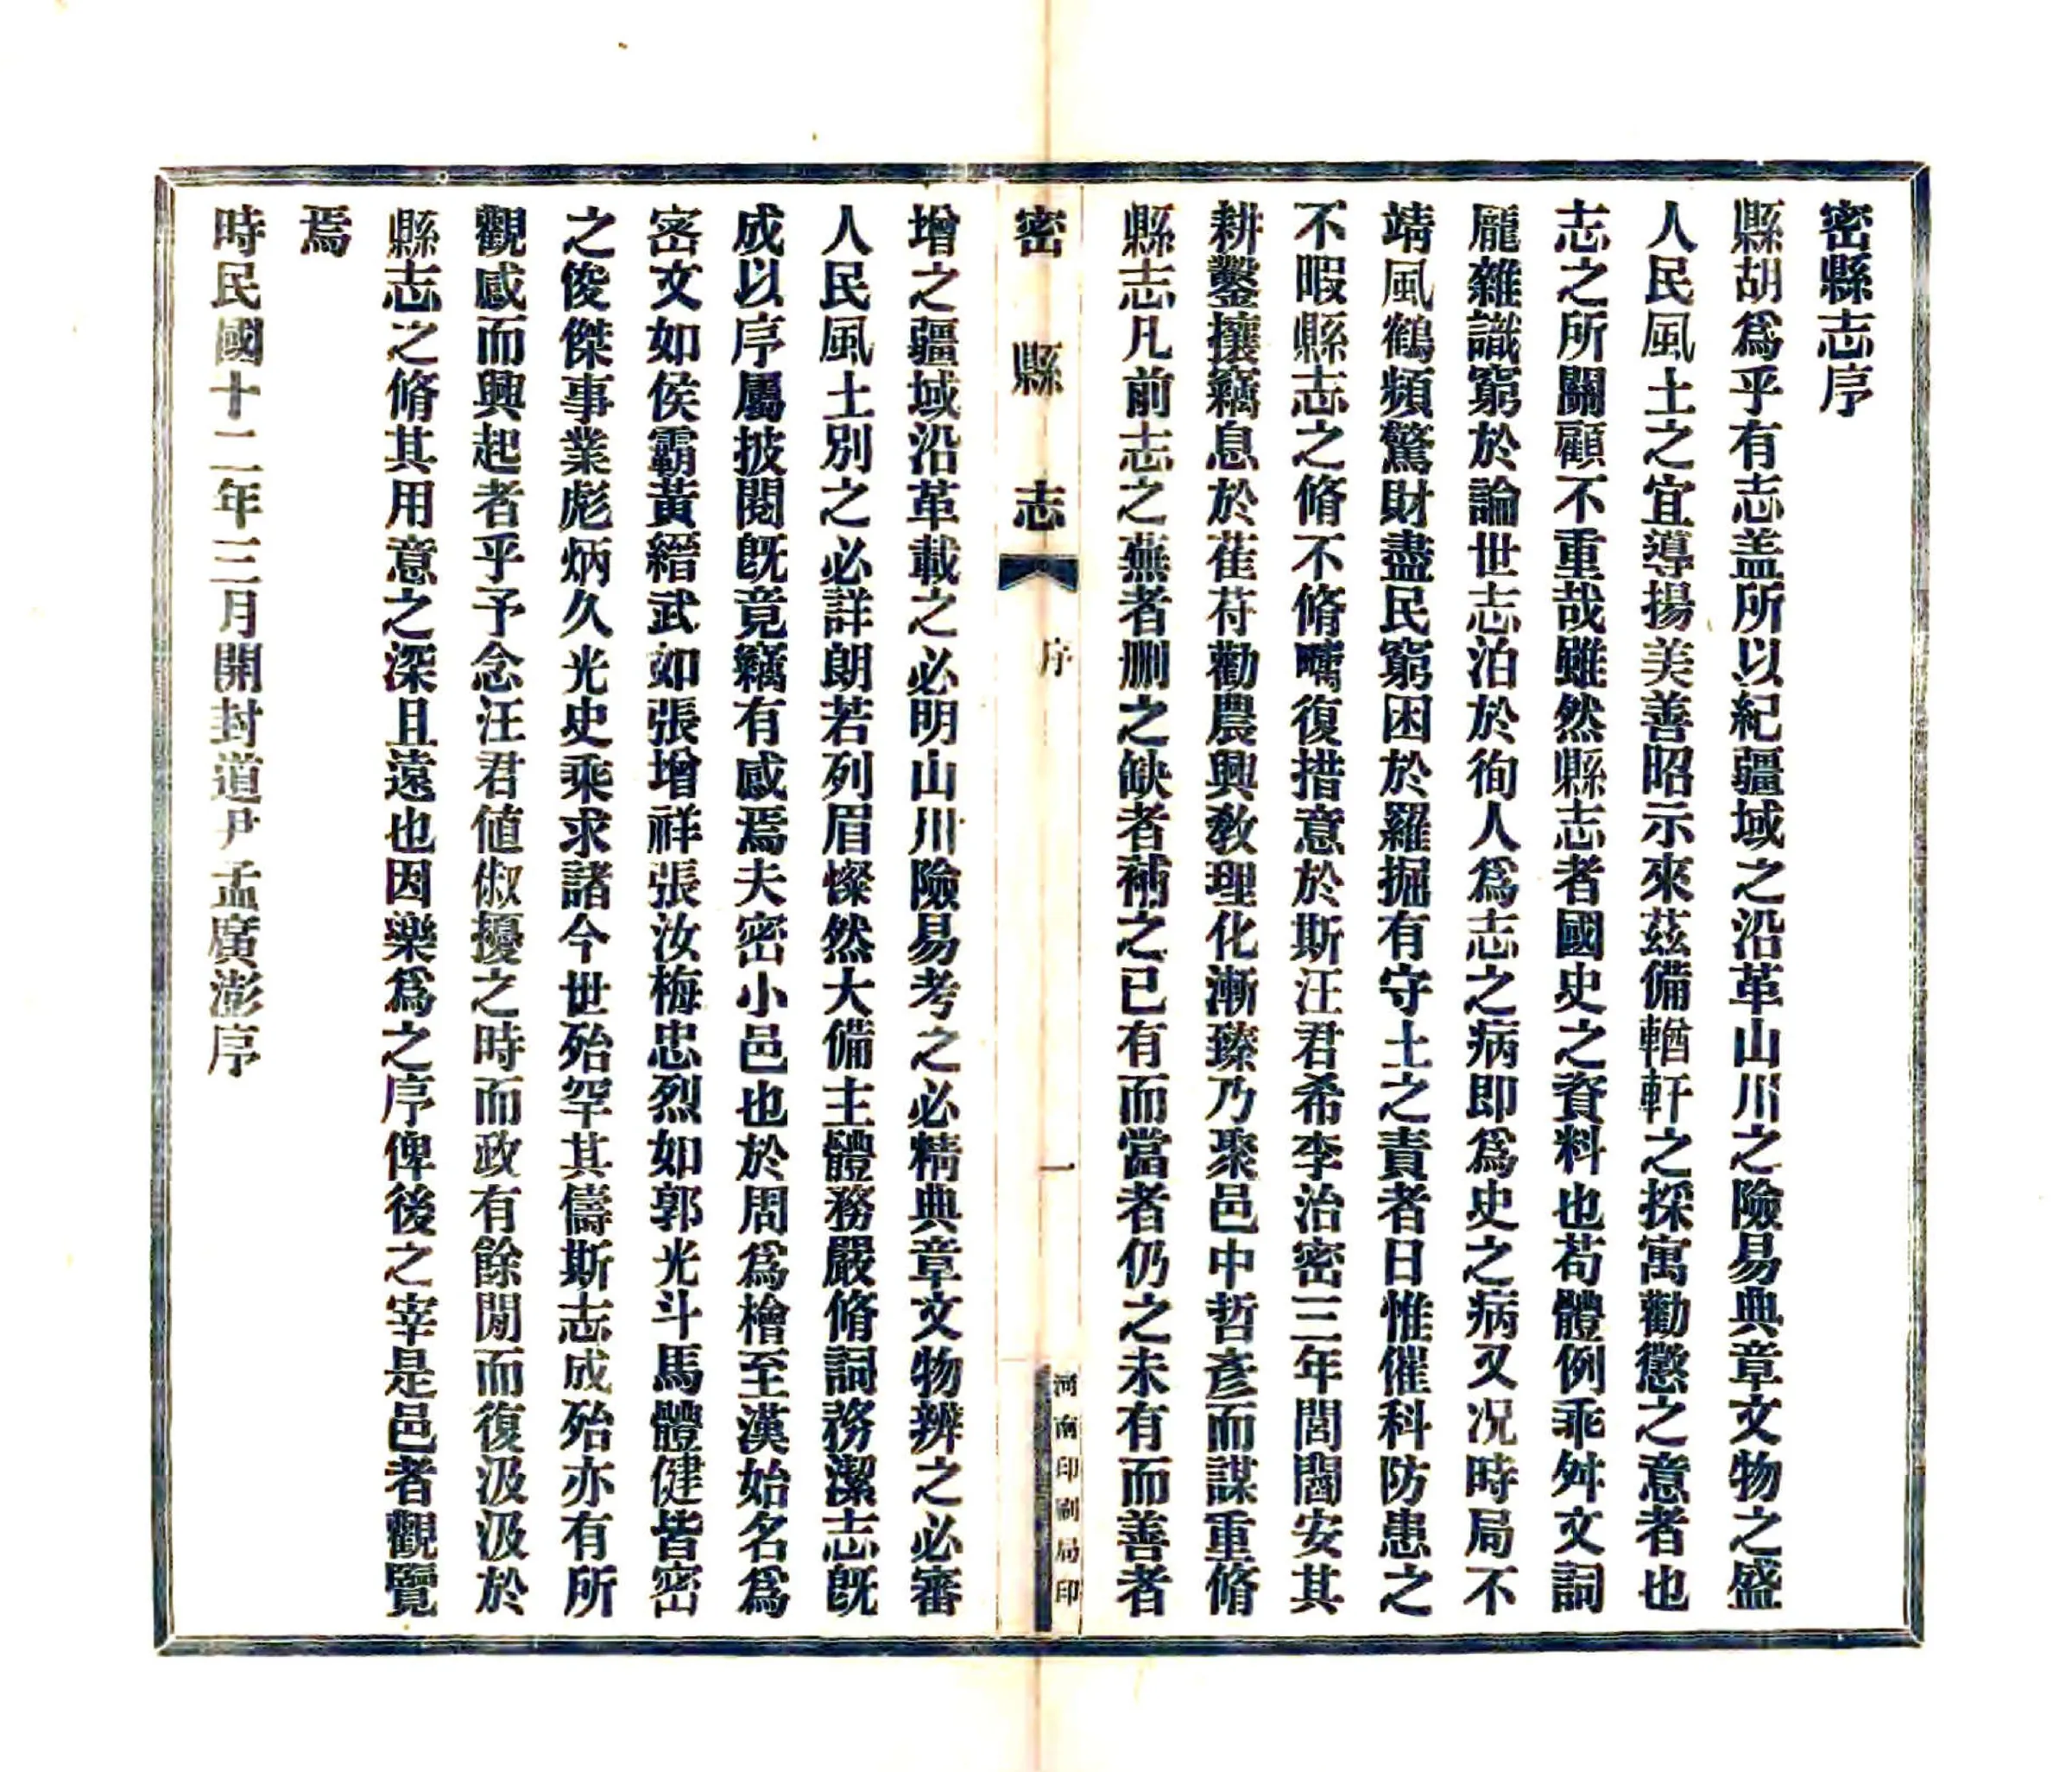 密縣志序
縣胡爲乎有志盖所以紀疆域之沿革山川之險易典章文物之盛
人民風土之宜導揚美善昭示來茲備輶軒之採寓勸懲之意者也
志之所關顧不重哉雖然縣志者國史之資料也苟體例乖舛文詞
龐雜識窮於論世志泊於徇人爲志之病即爲史之病又况時局不
靖風鶴頻驚財盡民窮困於羅掘有守土之責者日惟催科防患之
不暇縣志之脩不脩疇復措意於斯汪君希李治密三年閭閻安其
耕鑿攘竊息於萑苻勸農興敎理化漸臻乃聚邑中哲彥而謀重脩
縣志凡前志之蕪者删之缺者補之已有而當者仍之未有而善者
密縣志 序 一 河南印刷局印
增之疆域沿革載之必明山川險易考之必精典章文物辨之必審
人民風土別之必詳朗若列眉燦然大備主體務嚴脩詞務潔志旣
成以序屬披閱旣竟竊有感焉夫密小邑也於周爲檜至漢始名爲
密文如侯霸黃縉武如張增祥張汝梅忠烈如郭光斗馬體健皆密
之俊傑事業彪炳久光史乘求諸今世殆罕其儔斯志成殆亦有所
觀感而興起者乎予念汪君值俶擾之時而政有餘閒而復汲汲於
縣志之脩其用意之深且遠也因樂爲之序俾後之宰是邑者觀覽
焉
時民國十二年三月開封道尹孟廣澎序